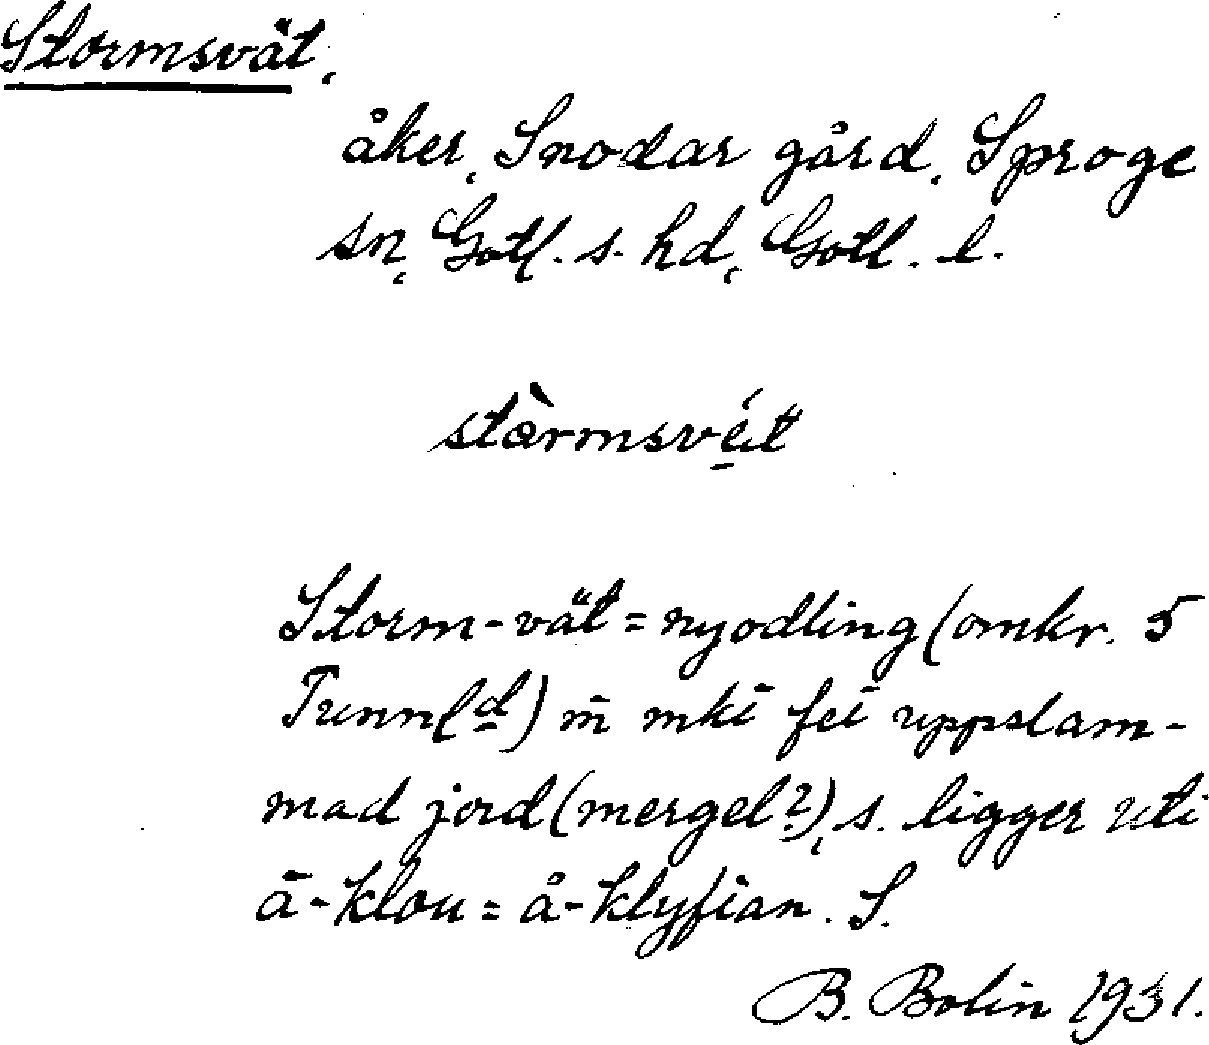 Stormsvät,
åker, Snodar gård, Sproge
sn, Gotl. s. hd, Gotl. l.
stòrmsvét
Storm-vät = nyodling (omkr. 5
Tunnl(d) m̄ mkī fei uppslam-
mad jord (mergel?), s. ligger uti
ā-klou = å-klyfian. S.
B. Bolin 1931.